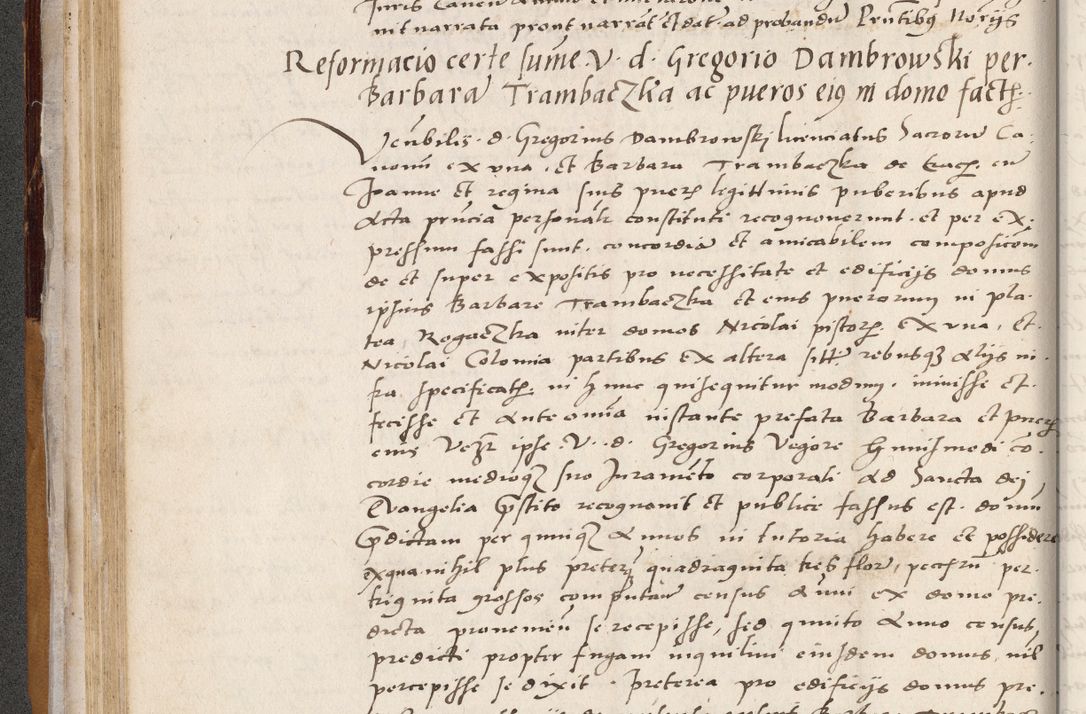 nit narrata prout narrat et dat ad probandū Prn̄tibꝰ Norijs
Reformacio certe sum̄e V. d. Gregorio Dambrowski per
Barbarā Trambaczka ac pueros eiꝰ in domo fact.
Ven̄bilis d. Gregorius Dambrowskj licenciatus Sacrorū Ca
nonū ex vna et Barbara Trambaczka de Crac. cū
Joanne et regina suis puer. legittimis puberibus apud
Acta pn̄cia personalr constituti recognouerunt et per ex
pressum fassi sunt concordiā et amicabilem composicom̄
de et super expositis pro necessitate et edificijs domus
ipsius Barbare Trambaczka et eius puerorum in pla
tea Rogaczka inter domos Nicolai pistor. ex vna, et
Nicolai Colonia partibus ex altera sitt. rebusqꝫ Alijs in
fra specificat. in hunc qui sequitur modum. inivisse et
fecisse et Ante omīa instante prefata Barbara et puer.
eius ipse V. d. Gregorius Vegore huiusmodi cō
cordie medioqꝫ suo Juramēto corporali Ad Sancta dej
Evangelia p̄stito recognouit et publice fassus est. domū
p̄dictam per quinqꝫ Annos in tutoria habere et possidere
ex qua nihil plus preter quadraginta tres flor, pecc̄rū per
triginta grossos computān census Annui ex domo pre
dicta pronemēn se recepisse, sed quinto Anno census
predicti propter fugam inquilini eiusdem domus, nil
percepisse se dixit. Preterea pro edificijs domus pre